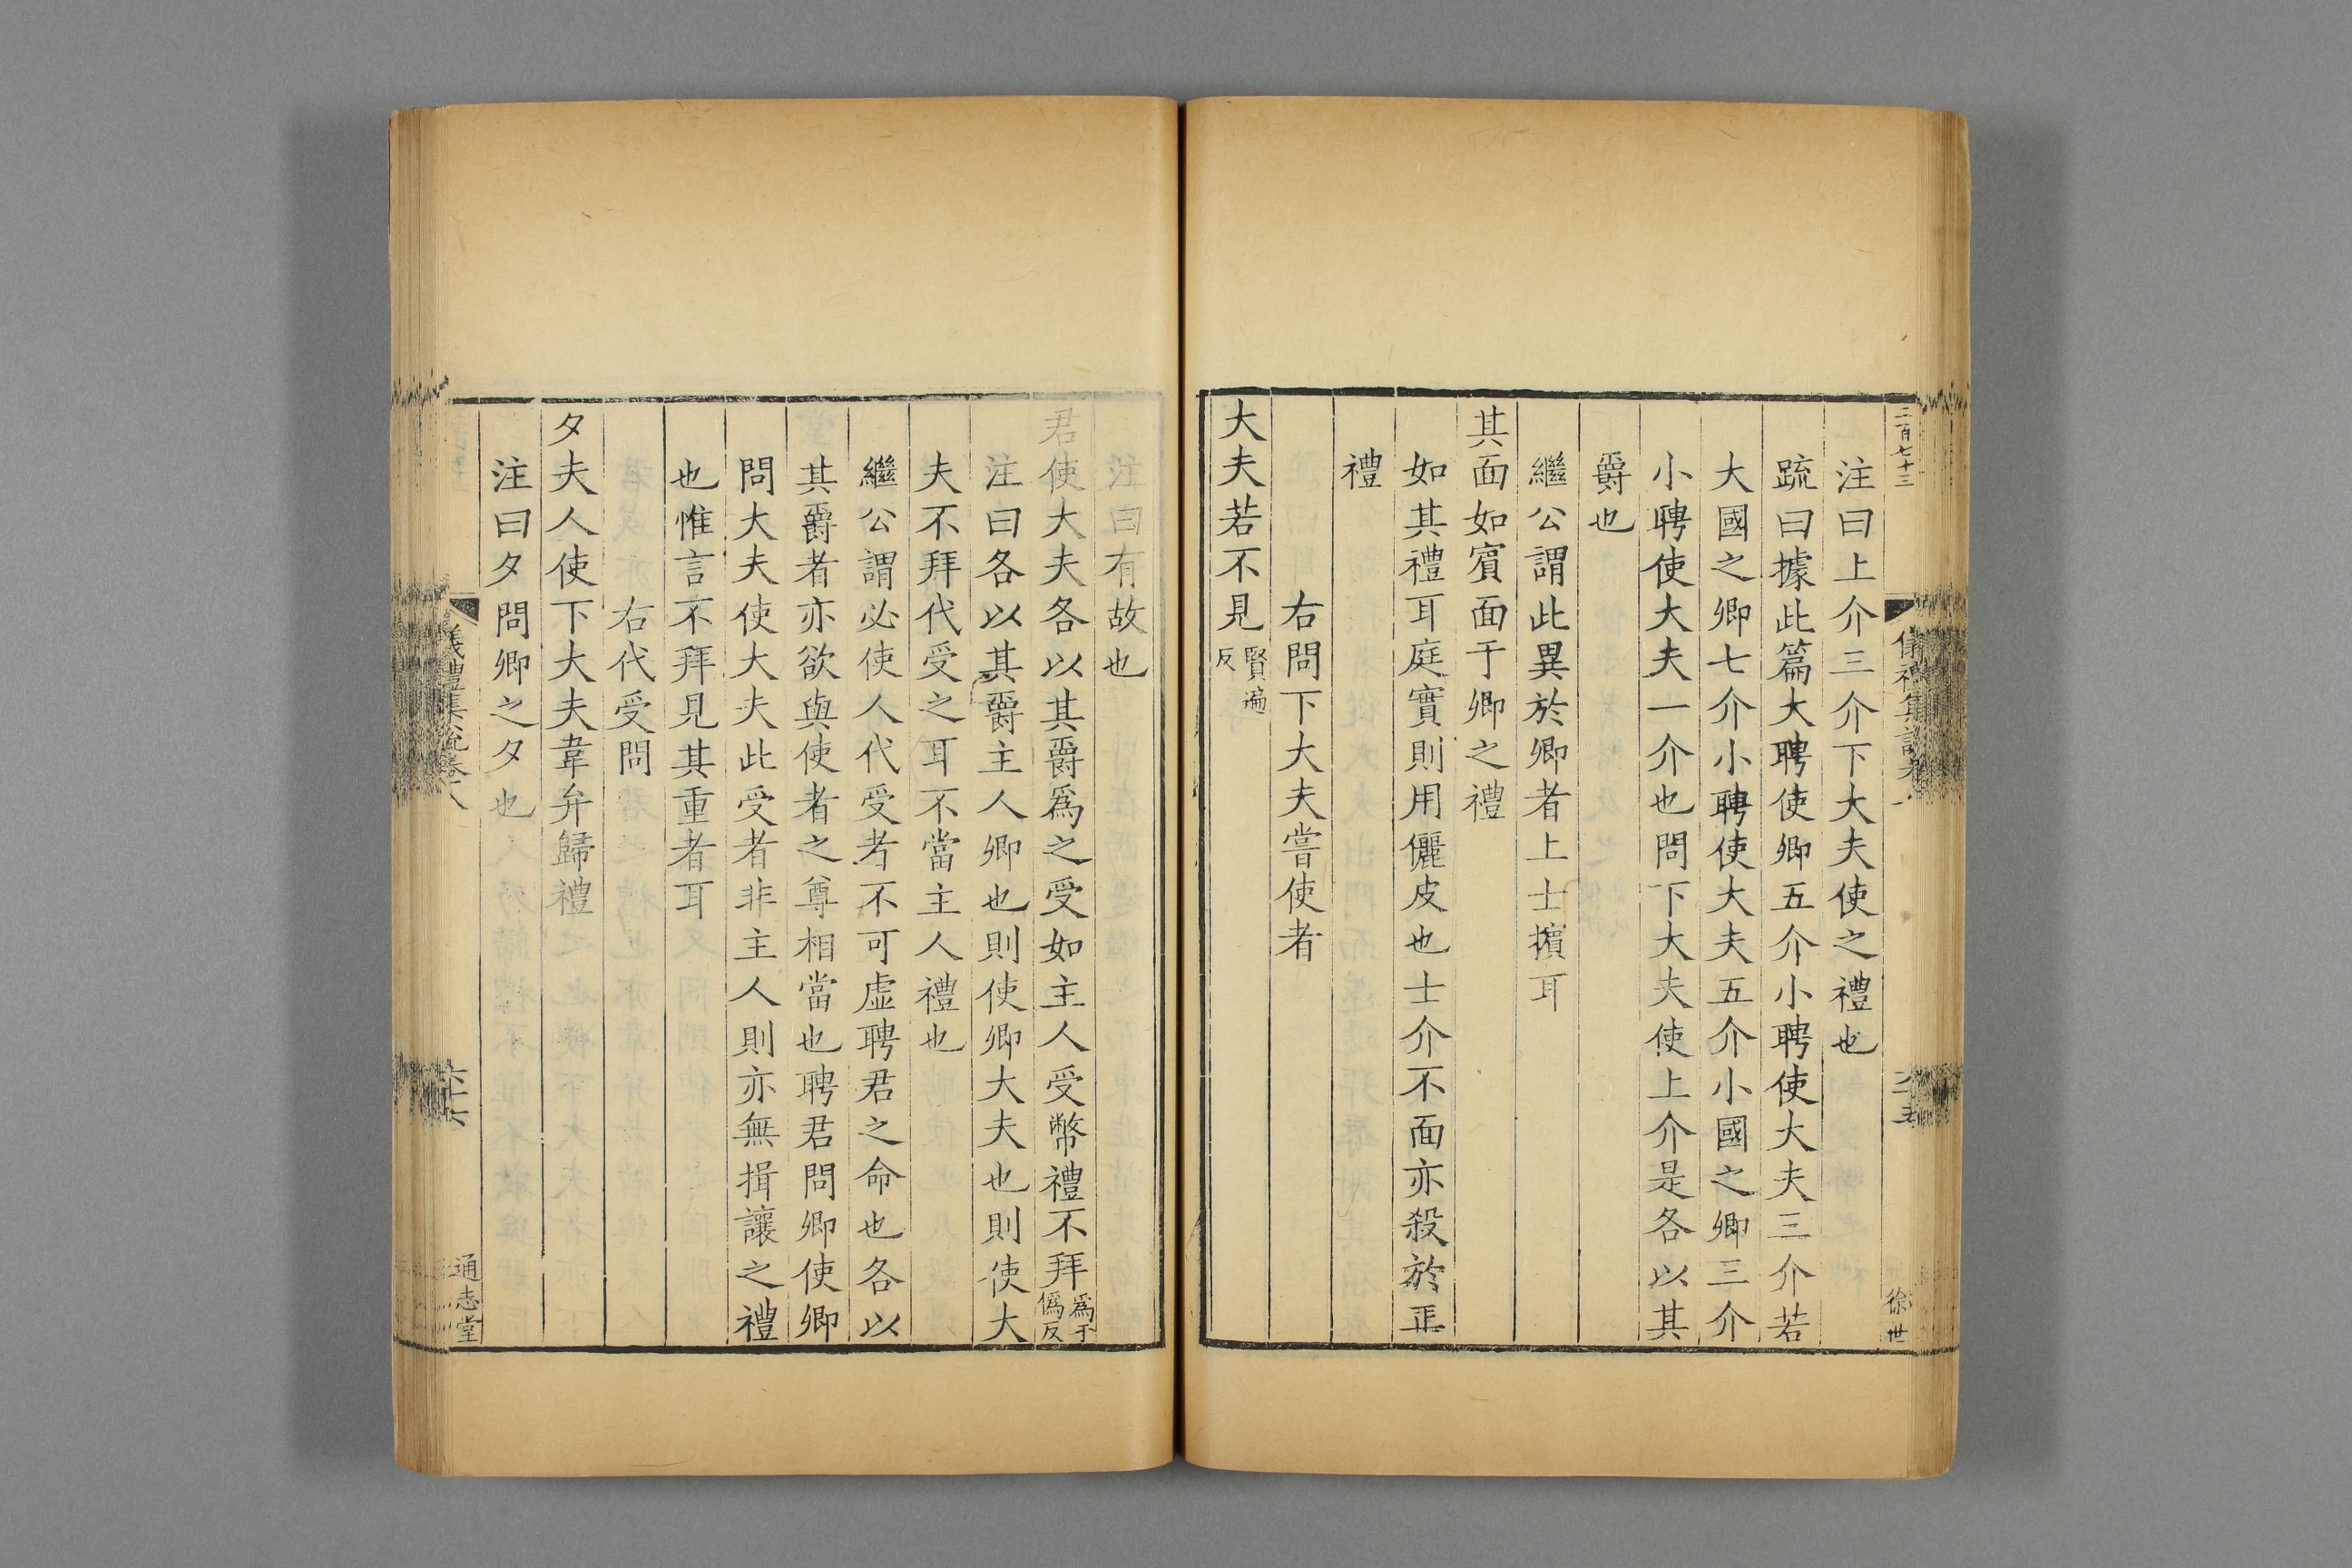 二百七十三
注曰上介三介下大夫使之禮也
疏曰據此篇大聘使卿五介小聘使大夫三介若
大國之卿七介小聘使大夫五介小國之卿三介
小聘使大夫一介也問下大夫使上介是各以其
爵也
繼公謂此異於卿者上士擯耳
其面如賓面于卿之禮
如其禮耳庭實則用儷皮也士介不面亦殺於正
禮
右問下大夫嘗使者
大夫若不見賢遍反
徐世
注曰有故也
君使大夫各以其爵爲之受如主人受幣禮不拜爲于僞反
注曰各以其爵主人卿也則使卿大夫也則使大
夫不拜代受之耳不當主人禮也
繼公謂必使人代受者不可虛聘君之命也各以
其爵者亦欲與使者之尊相當也聘君問卿使卿
問大夫使大夫此受者非主人則亦無揖讓之禮
也惟言不拜見其重者耳
右代受問
夕夫人使下大夫韋弁歸禮
注曰夕問卿之夕也
儀禮集說卷八
六十六
通志堂